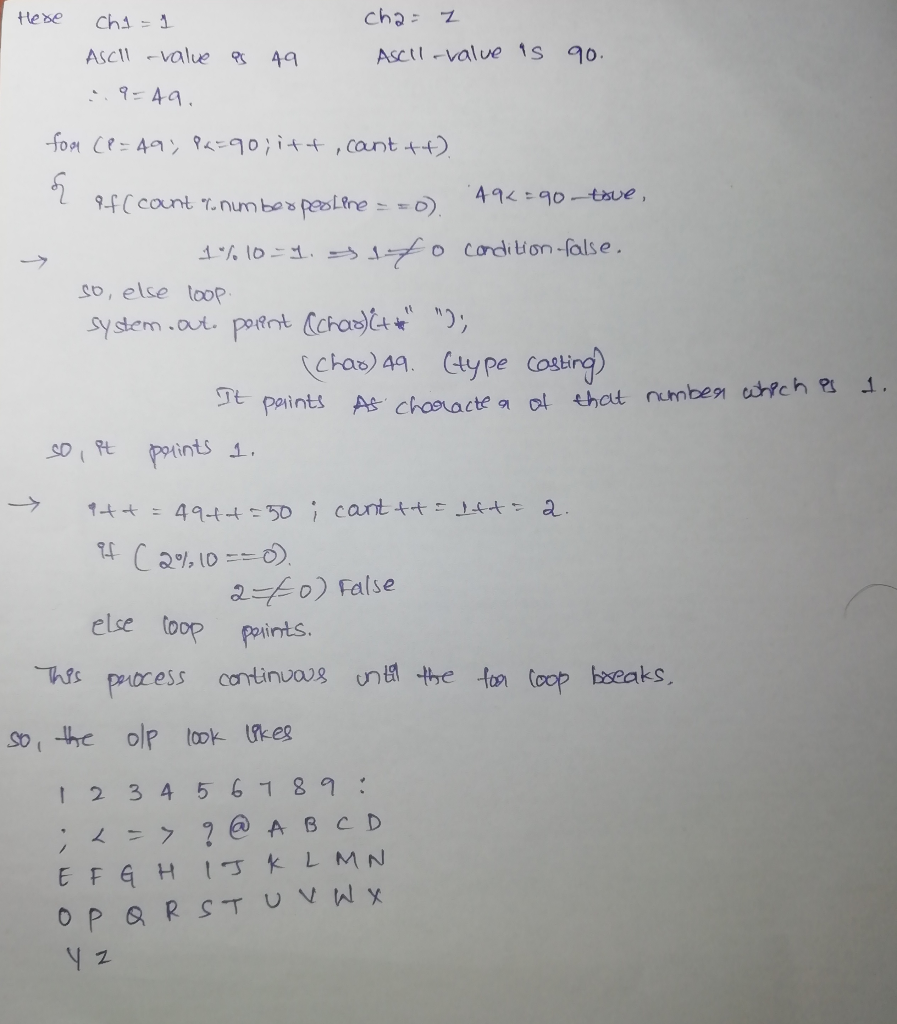 Here ch1 = 1 ch2 = Z
ASCII - value is 49 ASCII - value is 90.
∴ i = 49.
for (i = 49; i <= 90; i++, cont ++)
{ if (count % numberperline = = 0) 49 < = 90 – true,
→ 1 % 10 = 1. ⇒ 1 ≠ 0 condition-false.
so, else loop.
System.out. print ((char)i++" ");
(char) 49. (type casting)
It prints As character of that number which is 1.
so, it prints 1.
→ i++ = 49++ = 50 ; cont ++ = 1++ = 2.
if ( 2 % 10 == 0).
2 =≠ 0) False
else loop prints.
This process continuous until the for loop breaks.
so, the o/p look likes
1 2 3 4 5 6 7 8 9 :
; < = > ? @ A B C D
E F G H I J K L M N
O P Q R S T U V W X
Y Z